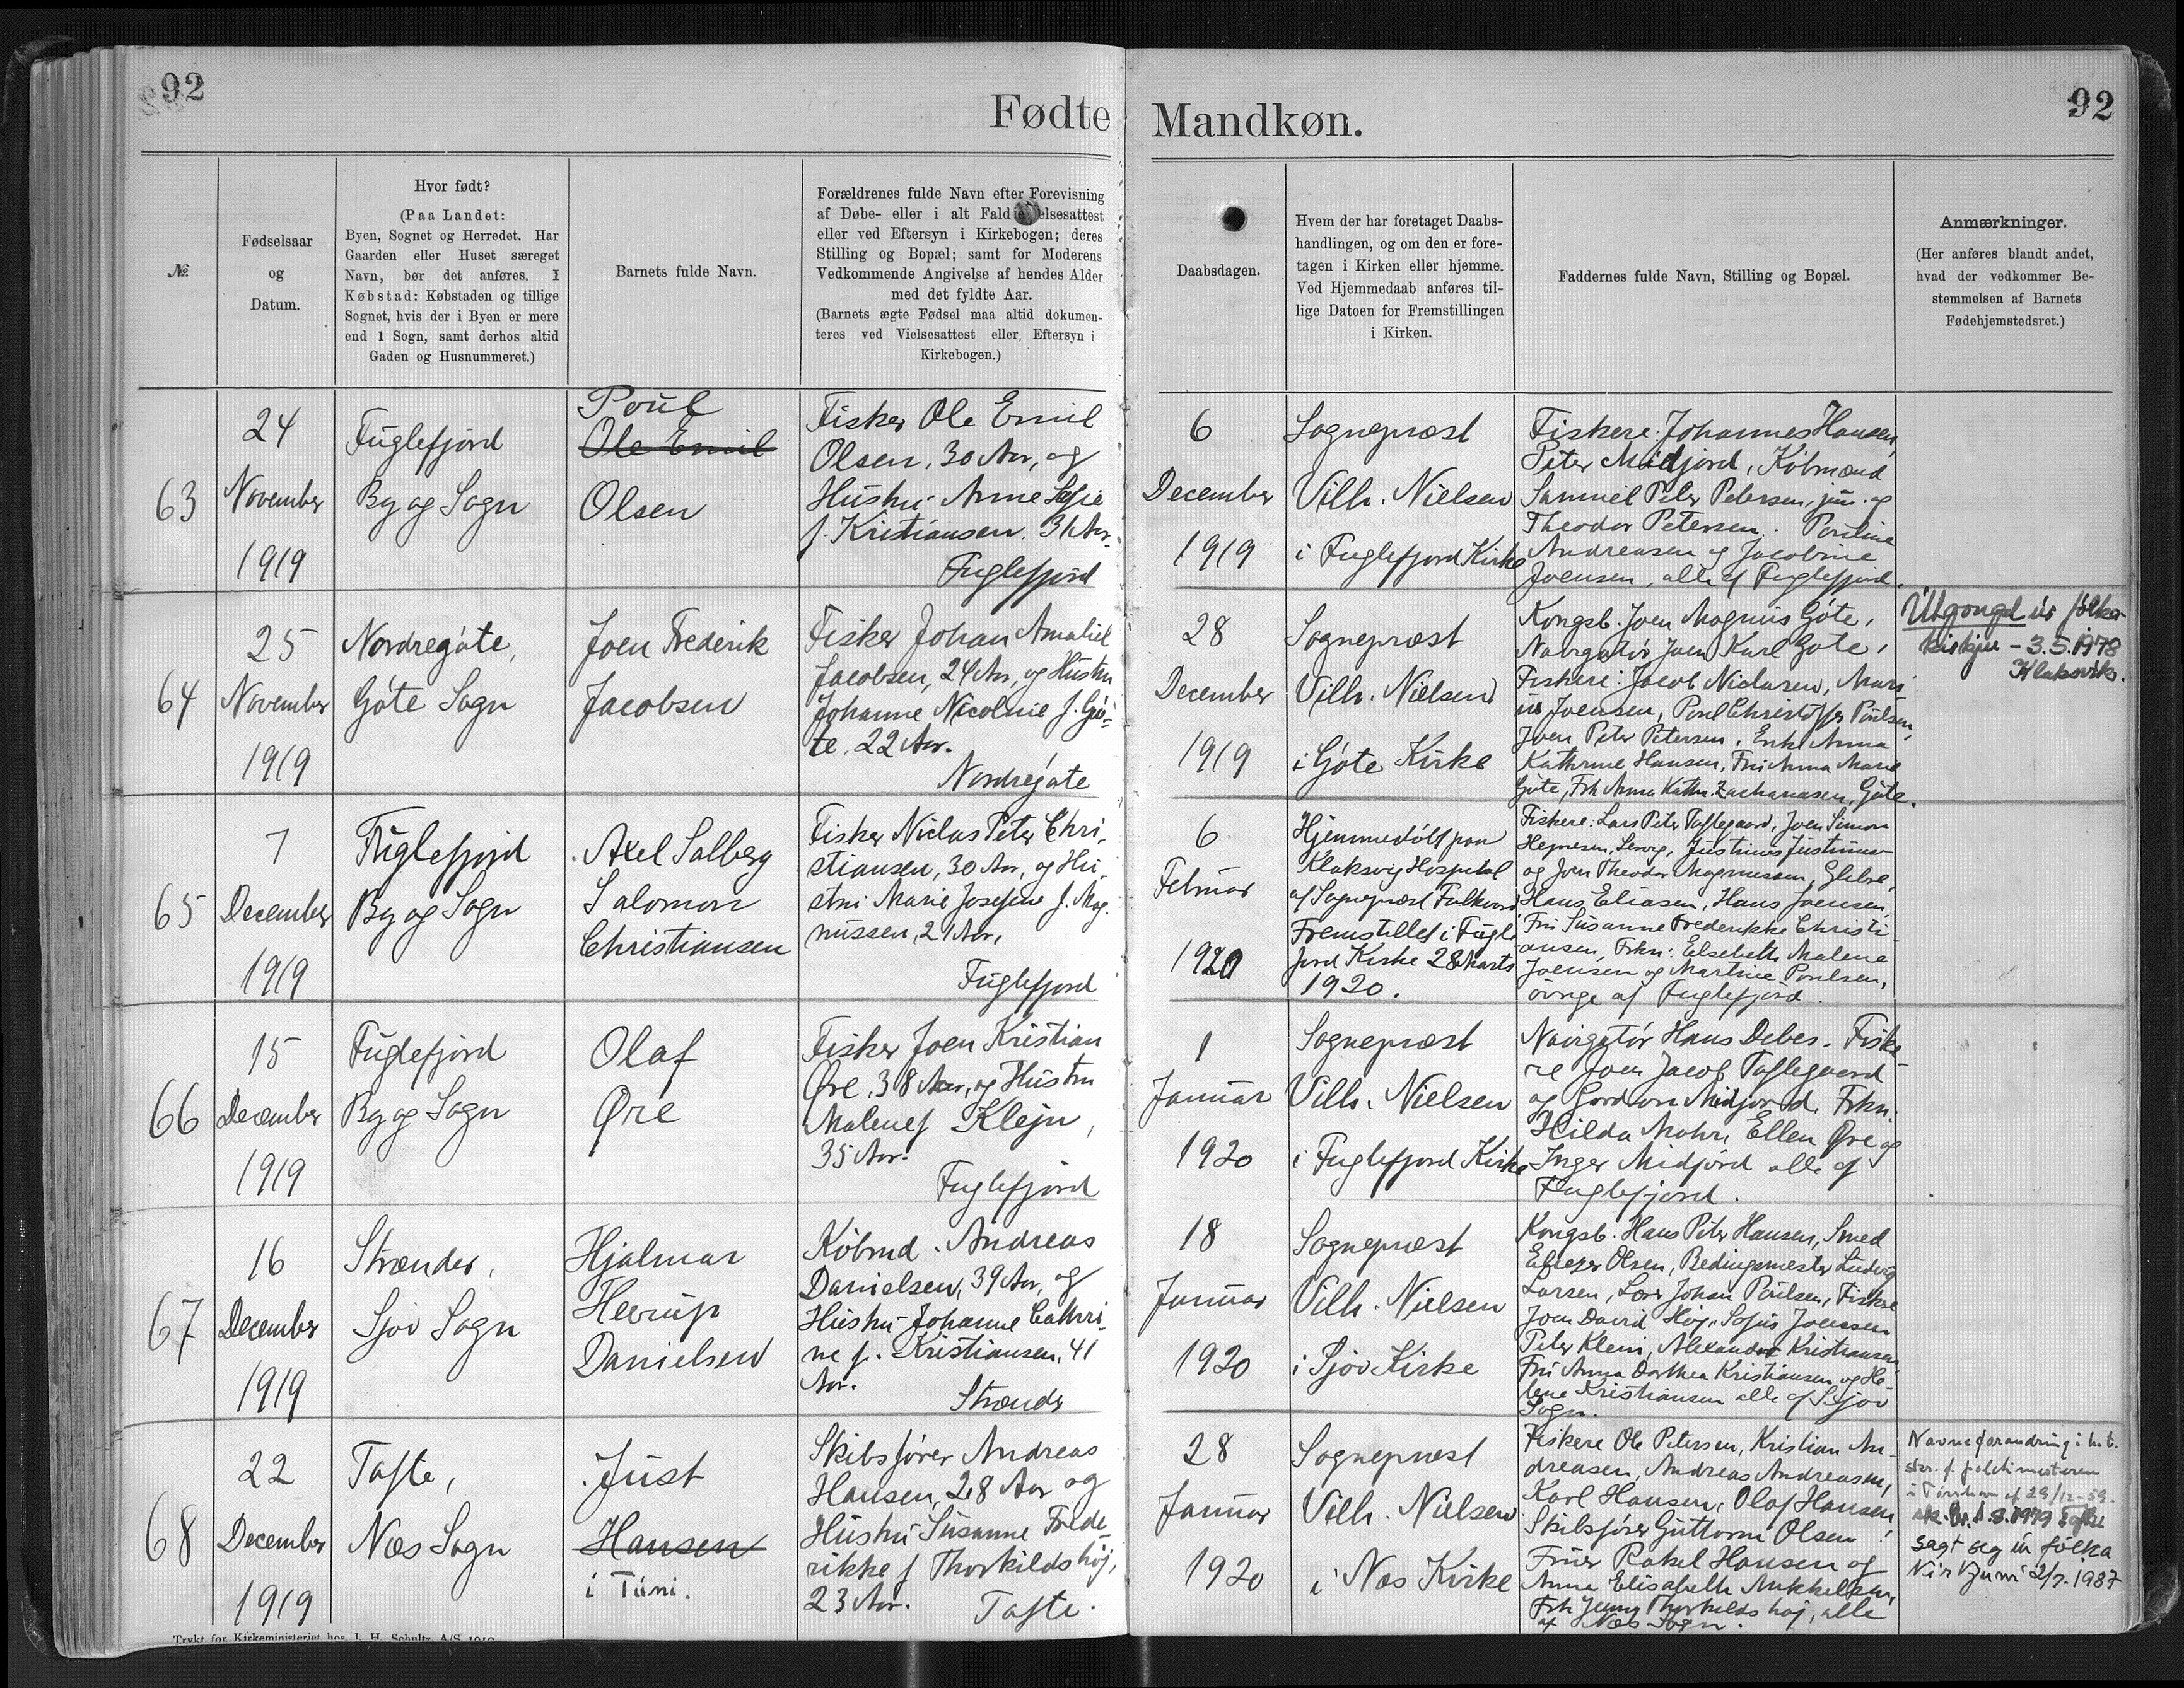 92
92
Fødte Mandkøn.
№
Fødselsaar
og
Datum.
Hvor født?
(Paa Landet:
Byen, Sognet og Herredet. Har
Gaarden eller Huset særeget
Navn, bør det anføres. I
Købstad: Købstaden og tillige
Sognet, hvis der i Byen er mere
end 1 Sogn, samt derhos altid
Gaden og Husnummeret.)
Barnets fulde Navn.
Forældrenes fulde Navn efter Forevisning
af Døbe- eller i alt Fald elsesattest
eller ved Eftersyn i Kirkebogen; deres
Stilling og Bopæl; samt for Moderens
Vedkommende Angivelse af hendes Alder
med det fyldte Aar.
(Barnets ægte Fødsel maa altid dokumen-
teres ved Vielsesattest eller Eftersyn i
Kirkebogen.)
Daabsdagen.
Hvem der har foretaget Daabs-
handlingen, og om den er fore-
tagen i Kirken eller hjemme.
Ved Hjemmedaab anføres til-
lige Datoen for Fremstillingen
i Kirken.
Faddernes fulde Navn, Stilling og Bopæl.
Anmærkninger.
(Her anføres blandt andet,
hvad der vedkommer Be-
stemmelsen af Barnets
Fødehjemstedsret.)
63
24
November
1919
Fuglefjord
By og Sogn
Poul
Ole Emil
Olsen
Fisker Ole Emil
Olsen, 30 Aar, og
Hustru Anne Sofie
f. Kristiansen. 31 Aar.
Fuglefjord
6
December
1919
Sognepræst
Vilh. Nielsen
i Fuglefjord Kirke
Fiskere: Johannes Hansen,
Peter Midjord, Købmænd
Samuel Peter Petersen, jun. og
Theodor Petersen. Pouline
Andreasen og Jacobine
Joensen, alle af Fuglefjord.
64
25
November
1919
Nordregøte,
Gøte Sogn
Joen Frederik
Jacobsen
Fisker Johan Amaliel
Jacobsen, 24 Aar, og Hustru
Johanne Nicoline f. Gø-
te. 22 Aar.
Nordregøte
28
December
1919
Sognepræst
Vilh. Nielsen
i Gøte Kirke
Kongsb. Joen Magnus Gøte,
Navigatør Joen Karl Gøte,
Fiskere: Jacob Niclasen, Mari-
us Joensen, Poul Christoffer Poulsen,
Joen Peter Petersen. Enke Anna
Kathrine Hansen, Fru Anna Marie
Gøte, Frk Anna Kathr. Zachariasen, Gøte.
Útgongd úr fólka
kirkjuni - 3.5.1978
Klaksvík.
65
7
December
1919
Fuglefjord
By og Sogn
Axel Salberg
Salomon
Christiansen
Fisker Niclas Peter Chri-
stiansen, 30 Aar, og Hu-
stru Marie Josefine f. Mag-
nussen, 21 Aar,
Fuglefjord
6
Februar
1920
Hjemmedøbt paa
Klaksvig Hospital
af Sognepræst Falkvard
Fremstillet i Fugle-
fjord Kirke 28 Marts
1920.
Fiskere: Lars Peter Toftegaard, Joen Simon
Lervig, Justinus Justinusen
og Joen Theodor Magnussen,
Hans Eliasen, Hans Joensen,
Fru Susanne Frederikke Christi-
ansen, Frkn: Elsebeth Malene
Joensen og Martine Poulsen,
øvrige af Fuglefjord.
66
15
December
1919
Fuglefjord
By og Sogn
Olaf
Øre
Fisker Joen Kristian
Øre, 38 Aar, og Hustru
Malene f. Klejn,
35 Aar.
Fuglefjord
1
Januar
1920
Sognepræst
Vilh. Nielsen
i Fuglefjord Kirke
Navigatør Hans Debes. Fiske-
re Joen Jacob Toftegaard
og Gordon Midjord. Frkn.
Hilda Mohr, Ellen Øre og
Inger Midjord alle af
Fuglefjord.
67
16
December
1919
Strænder,
Sjov Sogn
Hjalmar
Heerup
Danielsen
Købmd. Andreas
Danielsen, 39 Aar, og
Hustru Johanne Cathri-
ne f. Kristiansen, 41
Aar.
Strænder
18
Januar
1920
Sognepræst
Vilh. Nielsen
i Sjov Kirke
Kongsb. Hans Peter Hansen, Smed
Eliezer Olsen, Bedingsmester Ludvig
Larsen, Johan Poulsen, Fiskere
Joen David Høj, Sofus Joensen
Peter Klein, Alexander Kristiansen,
Fru Anna Dorthea Kristiansen og He-
lene Kristiansen alle af Sjov
Sogn.
68
22
December
1919
Tofte,
Næs Sogn
Just
Hansen
i Túni.
Skibsfører Andreas
Hansen, 28 Aar og
Hustru Susanne Frede-
rikke f. Thorkildshøj,
23 Aar.
Tofte.
28
Januar
1920
Sognepræst
Vilh. Nielsen
i Næs Kirke
Fiskere Ole Petersen, Kristian An-
dreasen, Andreas Andreasen,
Karl Hansen, Olaf Hansen,
Skibsfører Guttorm Olsen!
Fruer Rakel Hansen og
Anna Elisabeth Mikkelsen,
Frk Jenny Thorkildshøj, alle
af Næs Sogn.
Navneforandring i h.t.
skr. f. politimesteren
i Tórshavn af 29/12-59.
sagt seg úr fólka
2/7-1987
Trykt for Kirkeministeriet hos J. H. Schultz A/S 1919